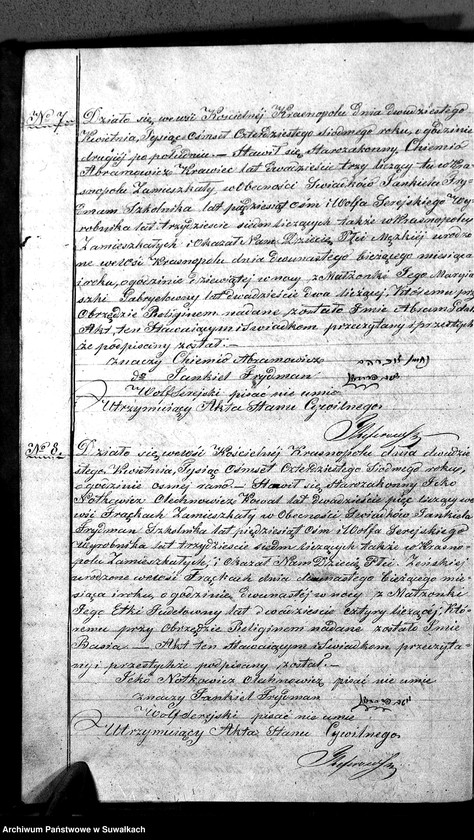 No 7. Działo się we wsi Kościelnéj Krasnopolu dnia dwudziestego
Kwietnia, Tysiąc Ośmset Czterdziestego siodmego roku, o godzinie
drugiéj po południu. — Stawił się Starozakonny, Chiemio
Abramowicz Krawiec lat dwadzieście trzy liczący tu w Kra-
snopolu Zamieszkały w Obecności Świadków Jankiela Fry-
dmana Szkolnika lat pięćdziesiąt ośm i Wolfa Serejskiego Wy-
robnika lat trzydzieście siedm liczących także w Krasnopolu
Zamieszkałych i Okazał Nam Dziecię Płci Męzkiéj urodzo-
ne we wsi Krasnopolu dnia dwunastego bieżącego miesiąca
i roku, o godzinie dziewiątéj w nocy z Małżonki Jego Maryja-
szki Gabryelowny lat dwadzieście dwa liczącéj. Któremu przy
Obrzędzie Religinem nadane zostało Imie Abram
Akt ten Stawającym i świadkom przeczytany i przez tych
że podpisany został. —
znaczy Chiemio Abramowicz
do Jankiel Frydman
Wolf Serejski pisać nie umie
Utrzymujący Akta Stanu Cywilnego.
No 8. Działo się we wsi Kościelnéj Krasnopolu dnia dwudzie-
stego Kwietnia, Tysiąc Ośmset Czterdziestego Siodmego roku,
o godzinie osméj rano. — Stawił się Starozakonny Icko
Notkowicz Olechnowicz Kowal lat dwadzieście pięć liczący we
wsi Frąckach Zamieszkały w Obecności Świadków Jankiela
Frydman Szkolnika lat pięćdziesiąt ośm i Wolfa Serejskiego
Wyrobnika lat trzydzieście siedm liczących także w Krasno-
polu Zamieszkałych, i Okazał Nam Dziecię Płci Żeńskiéj
urodzone we wsi Frąckach dnia dwunastego bieżącego mie-
siąca i roku, o godzinie dwunastéj w nocy z Małżonki
Jego Etki Judelowny lat dwadzieście cztyry liczącéj, Któ-
remu przy Obrzędzie Religinem nadane zostało Imie
Basia — Akt ten stawającym i świadkom przeczyta-
ny i przez tychże podpisany został. —
Icko Notkowicz Olechnowicz pisać nie umie
znaczy Jankiel Frydman
Wolf Serejski pisać nie umie
Utrzymujący Akta Stanu Cywilnego.
Archiwum Państwowe w Suwałkach